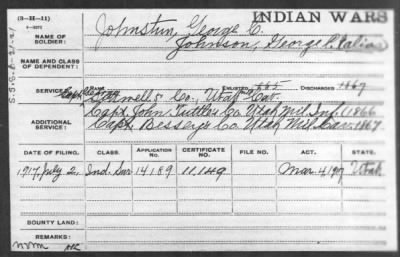 (3—H—11) INDIAN WARS
NAME OF SOLDIER: Johnstun, George C.
Johnson, George C. (alias)
NAME AND CLASS OF DEPENDENT:
SERVICE: Capt. Co., Utah Cav. ENLISTED 1865 DISCHARGED 1867
ADDITIONAL SERVICE: Capt. John Tuttles Co Utah Mil. Inf. 1866
Capt. Bessey's Co Utah Mil. Cav. 1867
DATE OF FILING. CLASS. APPLICATION No. CERTIFICATE No. FILE NO. ACT. STATE.
1917, July 2, Ind. Sur. 14189 11,149 Mar. 4, 1917 Utah
BOUNTY LAND:
REMARKS: